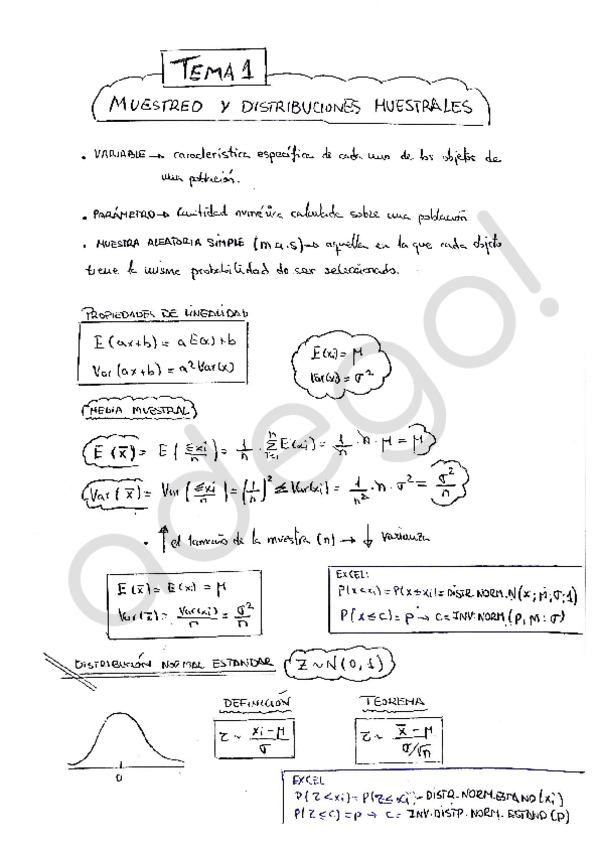 TEMA 1
MUESTREO Y DISTRIBUCIONES MUESTRALES
• VARIABLE → característica específica de cada uno de los objetos de
una población.
• PARÁMETRO → Cantidad numérica calculada sobre una población
• MUESTRA ALEATORIA SIMPLE (m.a.s) → aquella en la que cada objeto
tiene la misma probabilidad de ser seleccionado.
PROPIEDADES DE LINEALIDAD
E(ax+b) = a E(x)+b
Var(ax+b) = a² Var(x)
E(xi) = μ
Var(x) = σ²
MEDIA MUESTRAL
E(x̄) = E(Σxi/n) = 1/n · Σⁿᵢ₌₁ E(xi) = 1/n · n · μ = μ
Var(x̄) = Var(Σxi/n) = (1/n)² Σ Var(xi) = 1/n² · n · σ² = σ²/n
• ↑ el tamaño de la muestra (n) → ↓ varianza
E(x̄) = E(xi) = μ
Var(x̄) = Var(xi)/n = σ²/n
EXCEL:
P(x<xi) = P(x≤xi) = DISTR.NORM.N(x; μ; σ; 1)
P(x≤c) = p → c = INV.NORM.(p, μ; σ)
DISTRIBUCIÓN NORMAL ESTANDAR Z ~ N(0,1)
DEFINICIÓN
z ~ xi - μ / σ
TEOREMA
z ~ x̄ - μ / σ/√n
0
EXCEL
P(z<xi) = P(z≤xi) = DISTR.NORM.ESTAND(xi)
P(z≤c) = p → c = INV.DISTR.NORM.ESTAND(p)
adego!